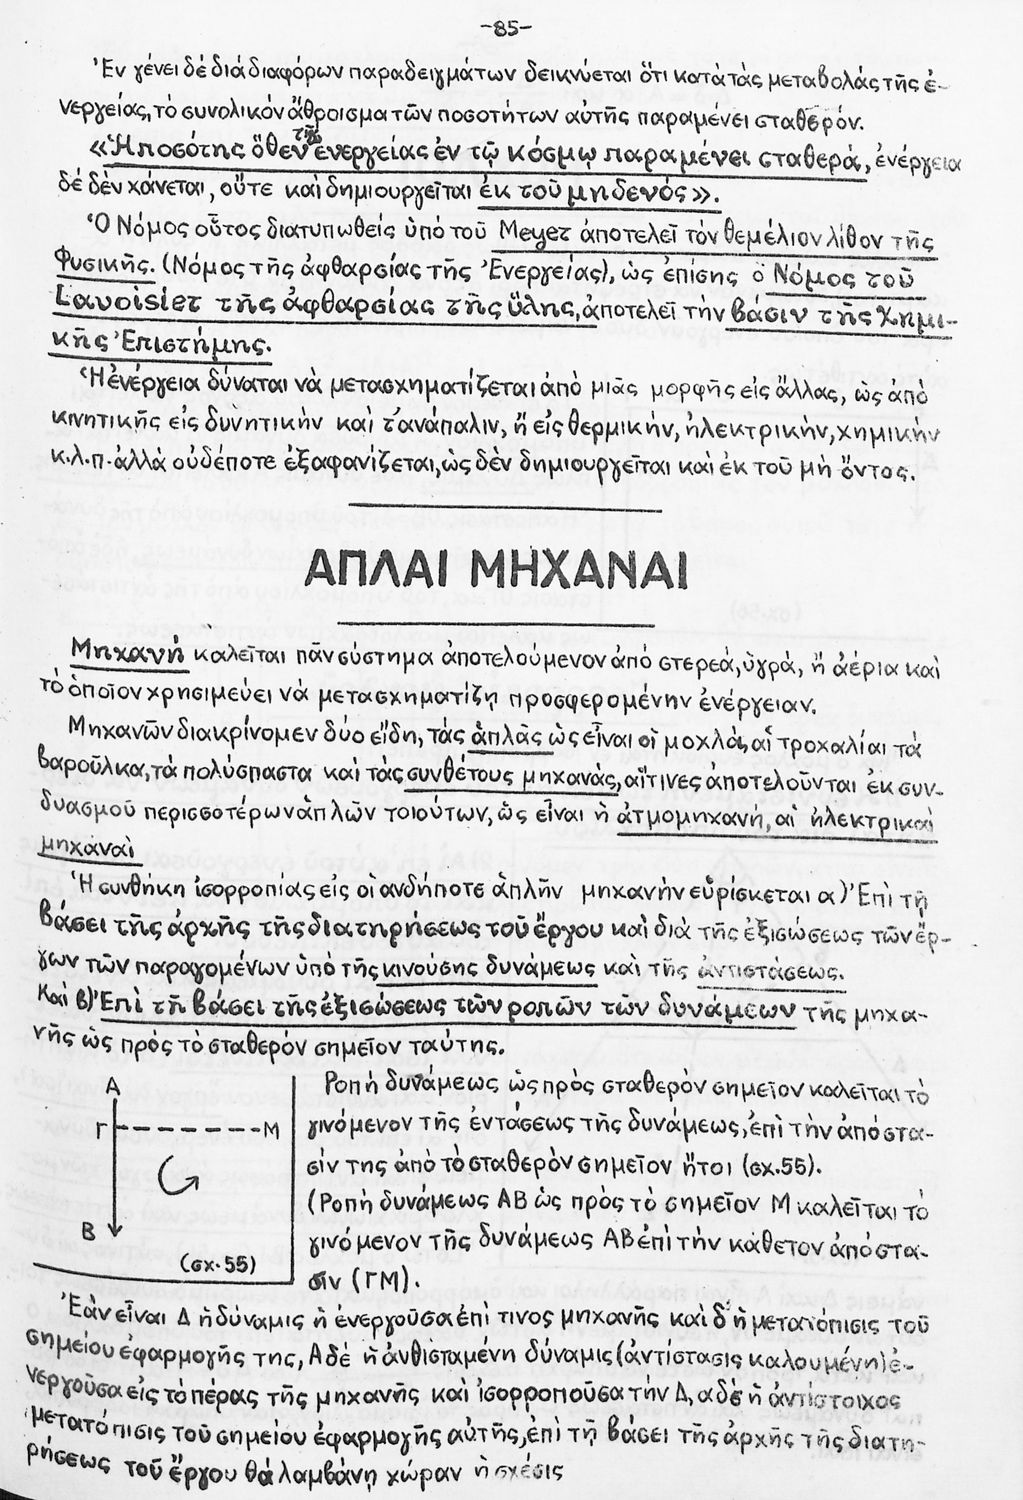 -85-
Ἐν γένει δέ διά διαφόρων παραδειγμάτων δεικνύεται ὅτι κατά τάς μεταβολάς τῆς ἐ-
νεργείας, τό συνολικόν ἄθροισμα τῶν ποσοτήτων αὐτῆς παραμένει σταθερόν.
«Ἡ ποσότης ὅθεν τῆς ἐνεργείας ἐν τῷ κόσμῳ παραμένει σταθερά, ἐνέργεια
δέ δέν χάνεται, οὔτε καί δημιουργεῖται ἐκ τοῦ μηδενός».
Ὁ Νόμος οὗτος διατυπωθείς ὑπό τοῦ Meyer ἀποτελεῖ τόν θεμέλιον λίθον τῆς
Φυσικῆς. (Νόμος τῆς ἀφθαρσίας τῆς Ἐνεργείας), ὡς ἐπίσης ὁ Νόμος τοῦ
Lavoisier τῆς ἀφθαρσίας τῆς ὕλης, ἀποτελεῖ τήν βάσιν τῆς Χημι-
κῆς Ἐπιστήμης.
Ἡ ἐνέργεια δύναται νὰ μετασχηματίζεται ἀπό μιᾶς μορφῆς εἰς ἄλλας, ὡς ἀπό
κινητικῆς εἰς δυνητικήν καί τ'ἀνάπαλιν, ἤ εἰς θερμικήν, ἠλεκτρικήν, χημικήν
κ.λ.π. ἀλλά οὐδέποτε ἐξαφανίζεται, ὡς δέν δημιουργεῖται καί ἐκ τοῦ μή ὄντος.
ΑΠΛΑΙ ΜΗΧΑΝΑΙ
Μηχανή καλεῖται πᾶν σύστημα ἀποτελούμενον ἀπό στερεά, ὑγρά, ἤ ἀέρια καί
τό ὁποῖον χρησιμεύει νά μετασχηματίζῃ προσφερομένην ἐνέργειαν.
Μηχανῶν διακρίνομεν δύο εἴδη, τάς ἁπλᾶς ὡς εἶναι οἱ μοχλοί, αἱ τροχαλίαι τά
βαροῦλκα, τά πολύσπαστα καί τάς συνθέτους μηχανάς, αἵτινες ἀποτελοῦνται ἐκ συν-
δυασμοῦ περισσοτέρων ἁπλῶν τοιούτων, ὡς εἶναι ἡ ἀτμομηχανή, αἱ ἠλεκτρικαί
μηχαναί
Ἡ συνθήκη ἰσορροπίας εἰς οἱανδήποτε ἁπλῆν μηχανήν εὑρίσκεται α) Ἐπί τῇ
βάσει τῆς ἀρχῆς τῆς διατηρήσεως τοῦ ἔργου καί διά τῆς ἐξισώσεως τῶν ἔρ-
γων τῶν παραγομένων ὑπό τῆς κινούσης δυνάμεως καί τῆς ἀντιστάσεως.
Καί β) Ἐπί τῇ βάσει τῆς ἐξισώσεως τῶν ροπῶν τῶν δυνάμεων τῆς μηχα-
νῆς ὡς πρός τό σταθερόν σημεῖον ταύτης.
Α
Γ
Μ
Β
(σχ.55)
Ροπή δυνάμεως ὡς πρός σταθερόν σημεῖον καλεῖται τό
γινόμενον τῆς ἐντάσεως τῆς δυνάμεως, ἐπί τήν ἀπόστα-
σίν της ἀπό τό σταθερόν σημεῖον ἤτοι (σχ.55).
(Ροπή δυνάμεως ΑΒ ὡς πρός τό σημεῖον Μ καλεῖται τό
γινόμενον τῆς δυνάμεως ΑΒ ἐπί τήν κάθετον ἀπόστα-
σιν (ΓΜ).
Ἐάν εἶναι Δ ἡ δύναμις ἡ ἐνεργοῦσα ἐπί τινος μηχανῆς καί δ ἡ μετατόπισις τοῦ
σημείου ἐφαρμογῆς της, Α δέ ἡ ἀνθισταμένη δύναμις (ἀντίστασις καλουμένη) ἐ-
νεργοῦσα εἰς τό πέρας τῆς μηχανῆς καί ἰσορροποῦσα τήν Δ, α δέ ἡ ἀντίστοιχος
μετατόπισις τοῦ σημείου ἐφαρμογῆς αὐτῆς, ἐπί τῇ βάσει τῆς ἀρχῆς τῆς διατη-
ρήσεως τοῦ ἔργου θά λαμβάνῃ χώραν ἡ σχέσις